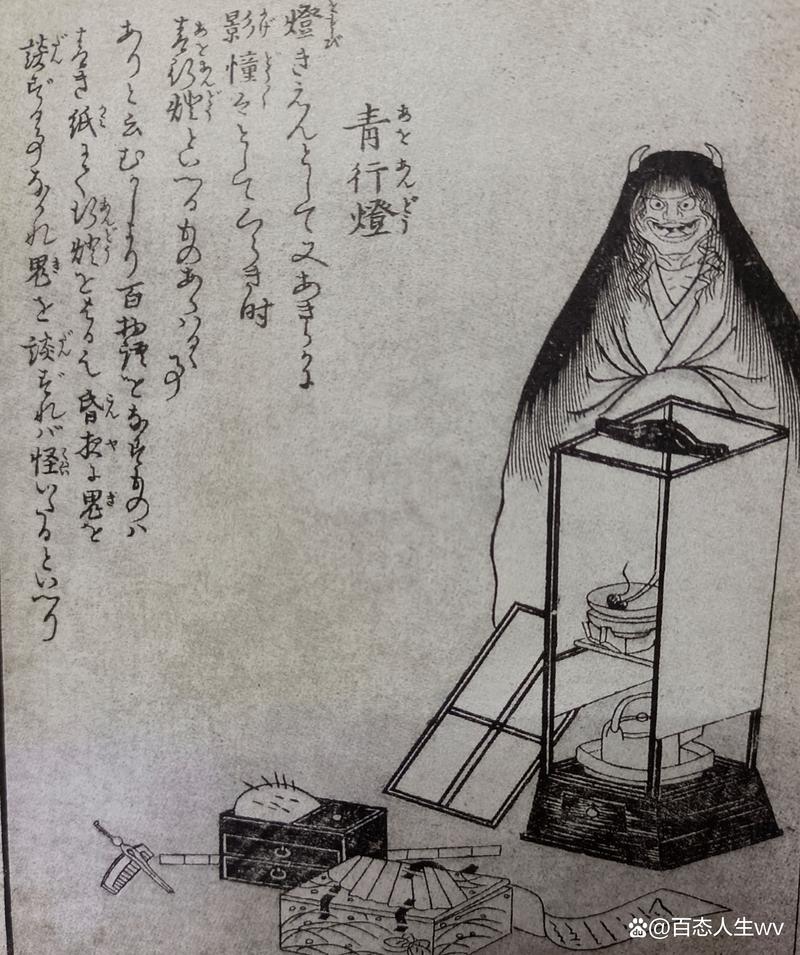 あをあんどう
青行燈
燈きえんとして又あきらかに
影憧々としてくらき時
青行燈といへるものあらハるゝ事
ありと云むかしより百物語をなすものハ
青き紙にて行燈をはる也昏夜に鬼を
談ずる事なかれ鬼を談ずれバ怪いたるといへり
Baidu @百态人生wv